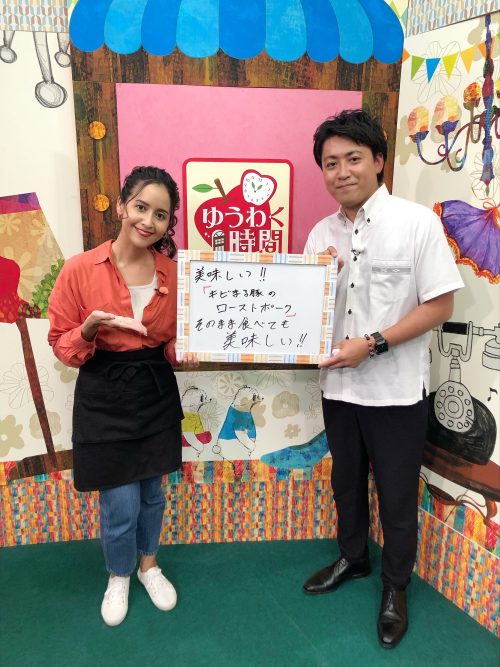 ゆうわく
時間
美味しい!!
「キビまる豚の
ローストポーク」
そのまま食べても
美味しい!!